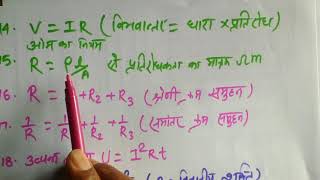 14. V = IR (विभवान्तर = धारा × प्रतिरोध)
ओम का नियम
15. R = ρl/A से प्रतिरोधकता का मात्रक Ωm
16. R = + R₂ + R₃ (श्रेणी क्रम समूहन)
17. 1/R = 1/R₁ + 1/R₂ + 1/R₃ (समांतर क्रम समूहन)
18. = I²Rt